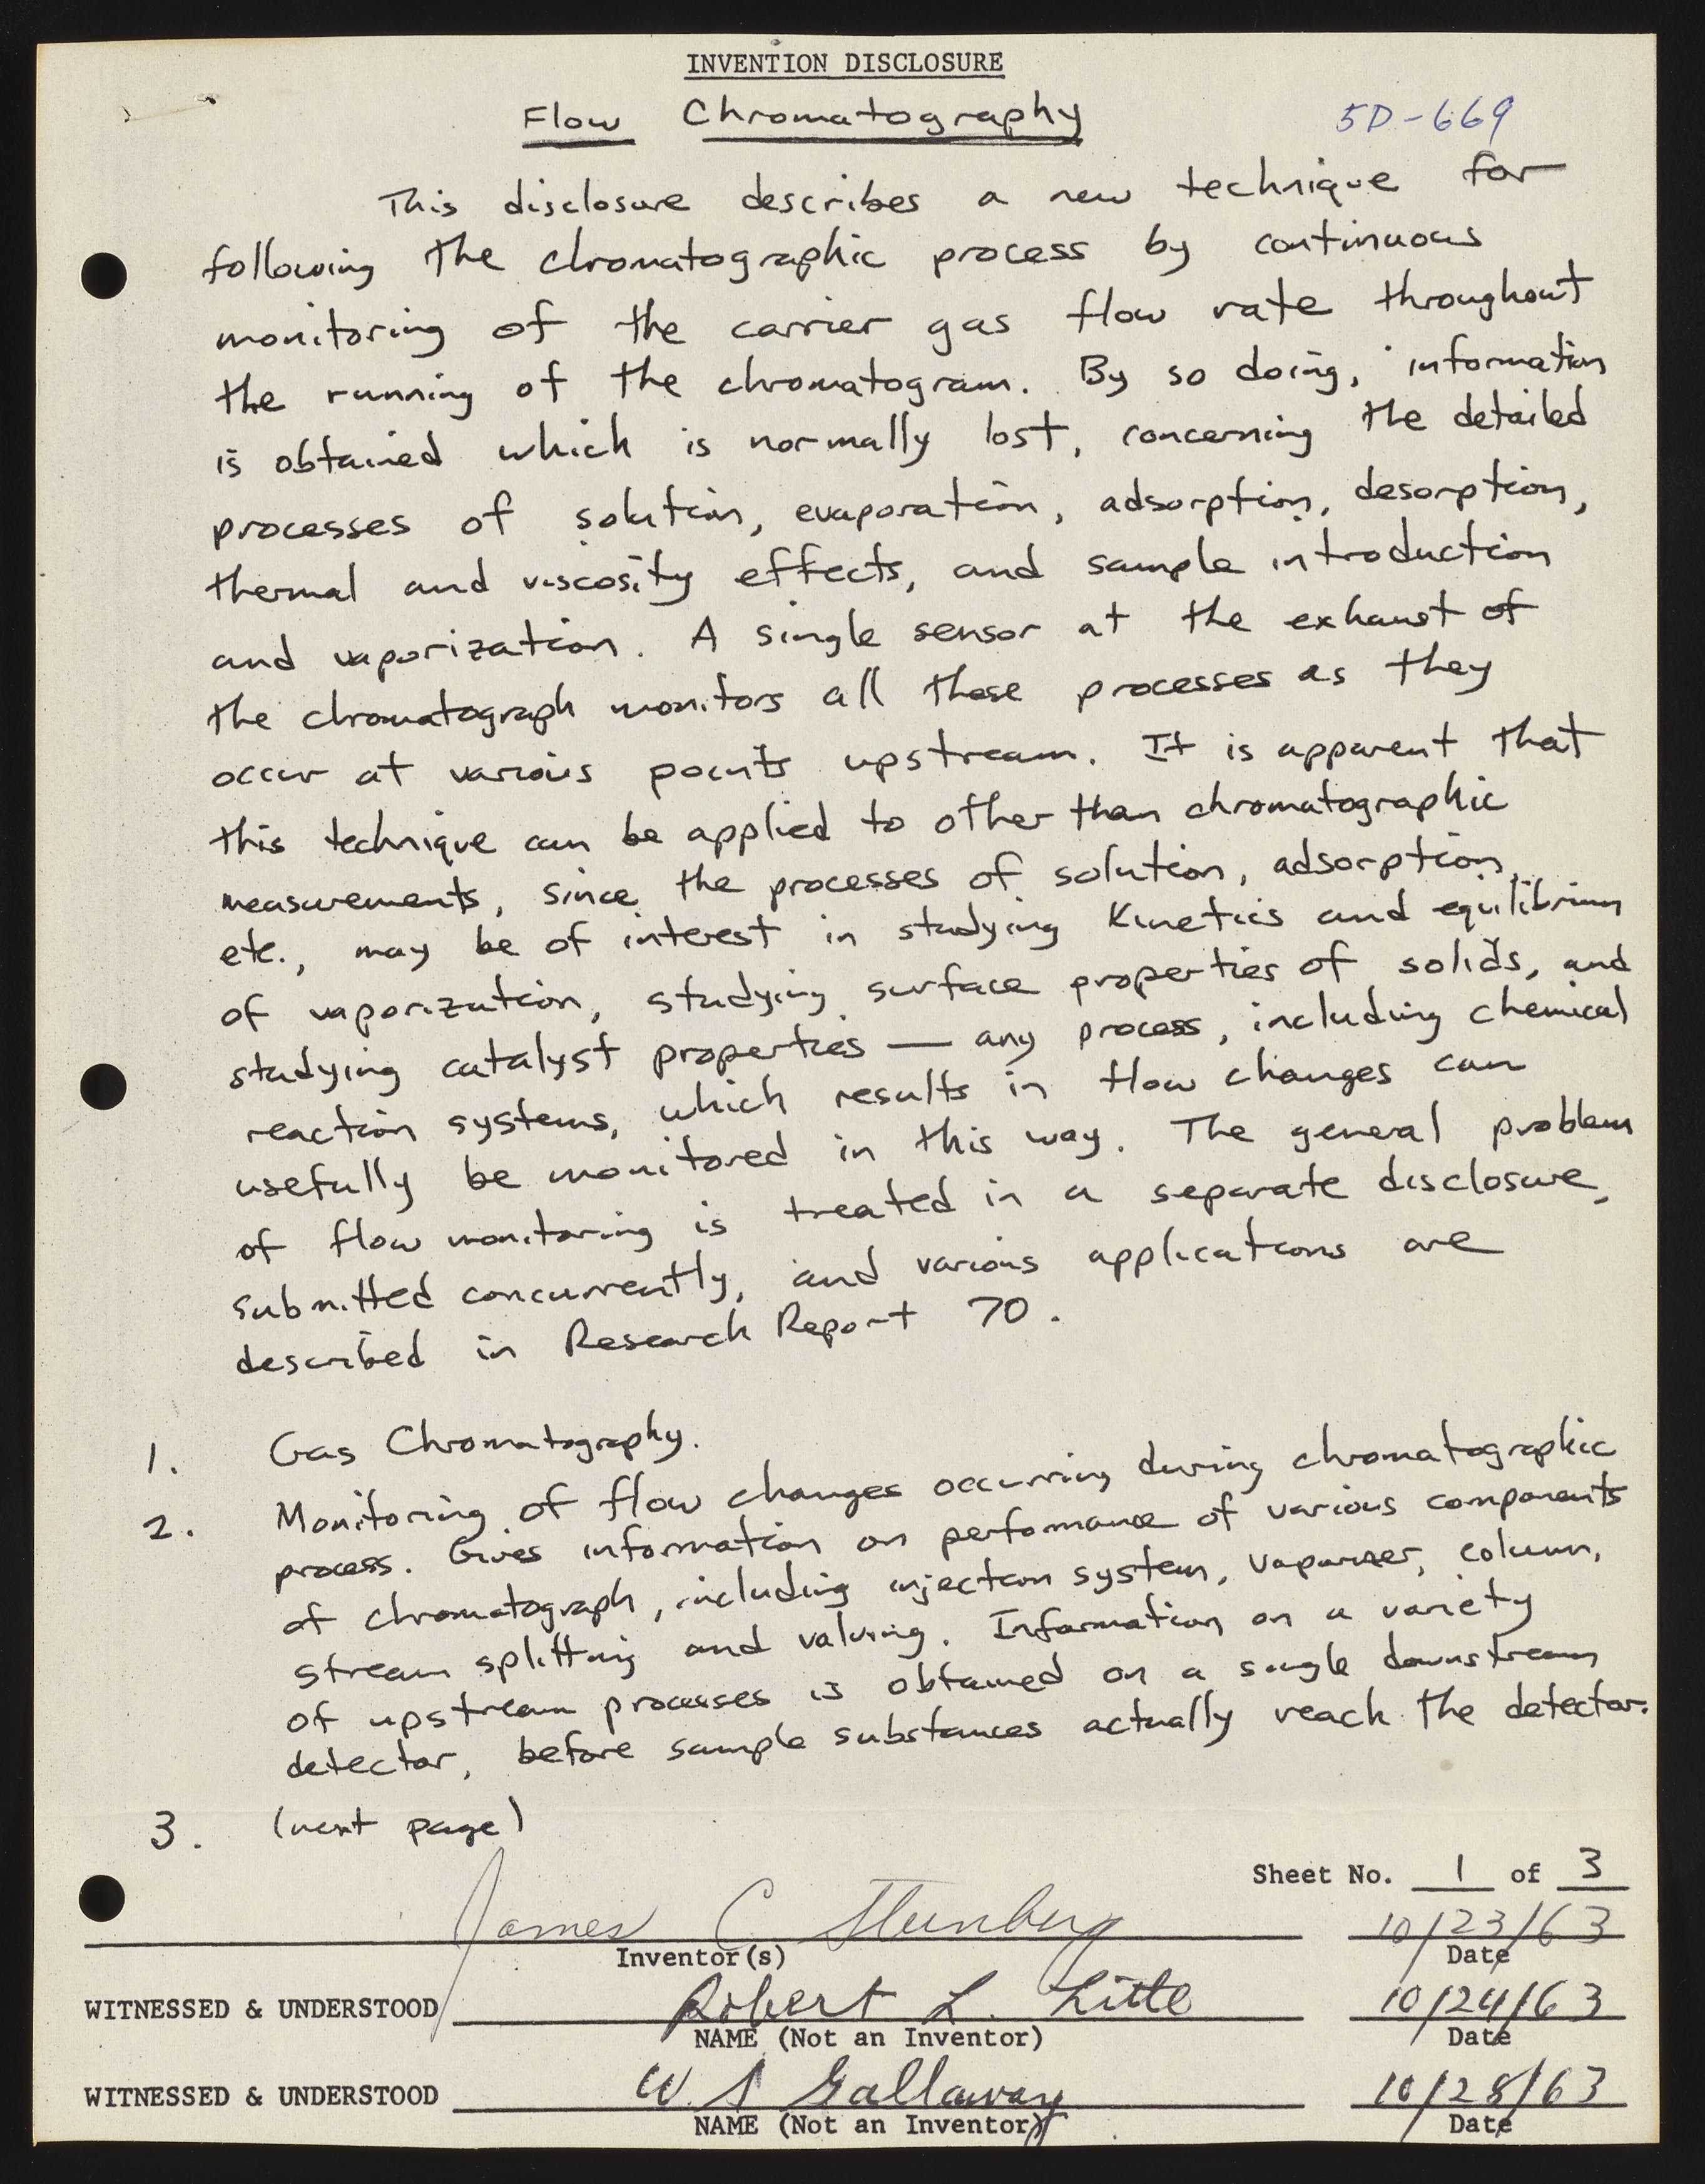 INVENTION DISCLOSURE
Flow Chromatography
5D-669
This disclosure describes a new technique for
following the chromatographic process by continuous
monitoring of the carrier gas flow rate throughout
the running of the chromatogram. By so doing, information
is obtained which is normally lost, concerning the detailed
processes of solution, evaporation, adsorption, desorption,
thermal and viscosity effects, and sample introduction
and vaporization. A single sensor at the exhaust of
the chromatograph monitors all these processes as they
occur at various points upstream. It is apparent that
this technique can be applied to other than chromatographic
measurements, since the processes of solution, adsorption,
etc., may be of interest in studying kinetics and equilibrium
of vaporization, studying surface properties of solids, and
studying catalyst properties — any process, including chemical
reaction systems, which results in flow changes can
usefully be monitored in this way. The general problem
of flow monitoring is treated in a separate disclosure,
submitted concurrently, and various applications are
described in Research Report 70.
1. Gas Chromatography.
2. Monitoring of flow changes occurring during chromatographic
process. Gives information on performance of various components
of chromatograph, including injection system, vaporizer, column,
stream splitting and valving. Information on a variety
of upstream processes is obtained on a single downstream
detector, before sample substances actually reach the detector.
3. (next page)
Sheet No. 1 of 3
James C Sternberg 10/23/63
Inventor(s) Date
WITNESSED & UNDERSTOOD Robert L. Little 10/24/63
NAME (Not an Inventor) Date
WITNESSED & UNDERSTOOD W. S Gallaway 10/28/63
NAME (Not an Inventor) Date